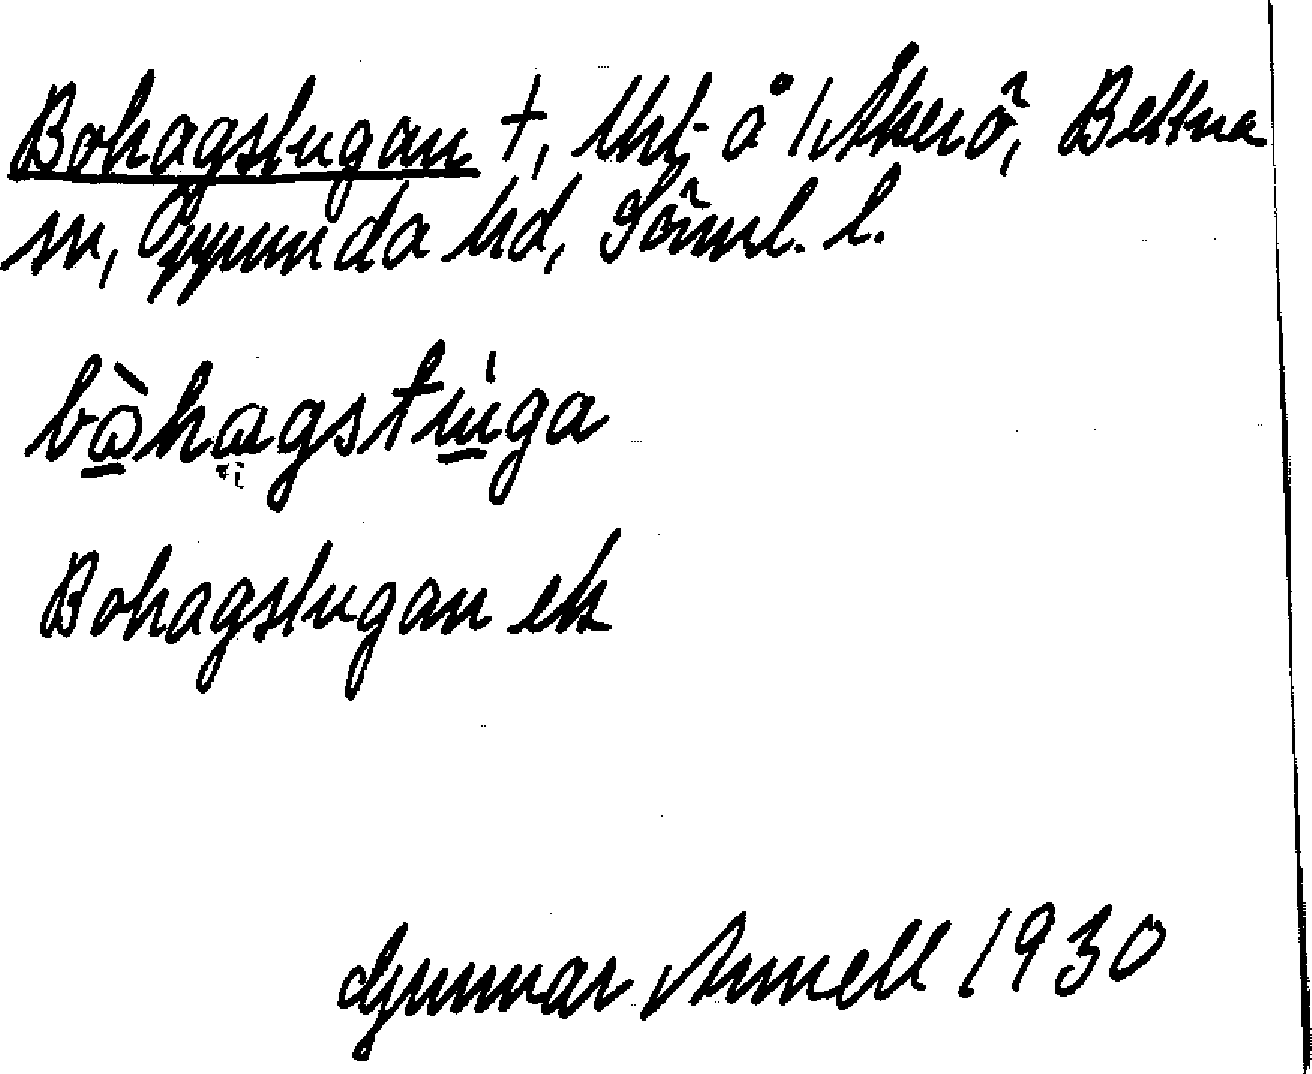 Bohagstugan †, Uht. å 1 Åkerö, Bettna
sn, Oppunda hd, Söml. l.
bòhagstúga
Bohagstugan ek
Gunnar Arnell 1930